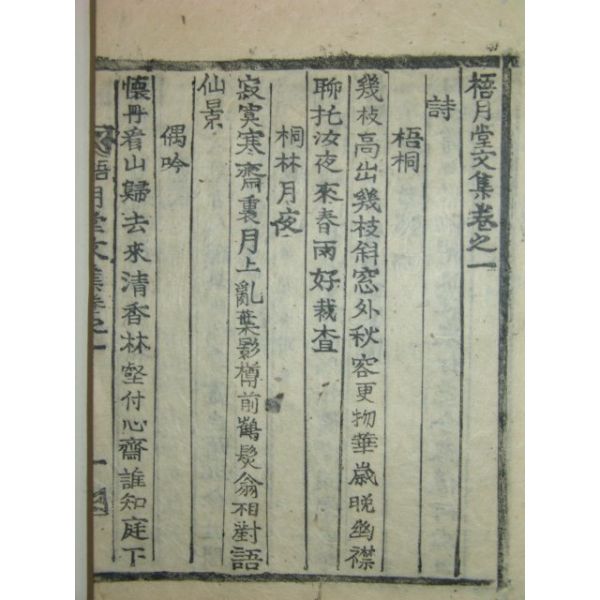 梧月堂文集卷之一
詩
梧桐
幾枝高出幾枝斜窓外秋容更物華歲晩幽襟
聊托汝夜來春雨好栽查
桐林月夜
寂寞寒齋裏月上亂葉影樽前鶴髮翁相對語
仙景
偶吟
懷丹看山歸去來清香林壑付心齋誰知庭下
梧月堂文集卷之一
一